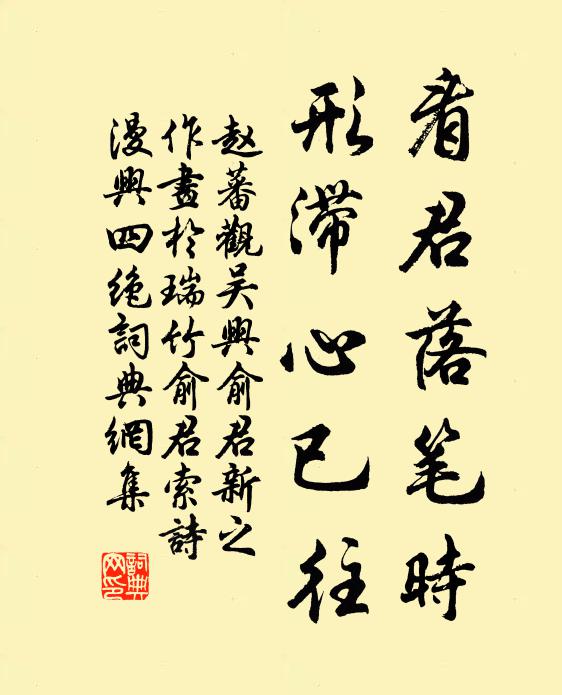 看君落笔時
形滞心已往
赵蕃觀吴興俞君新之
作畫於瑞竹俞君索詩
漫興四絶詞典網集
詞典
网印